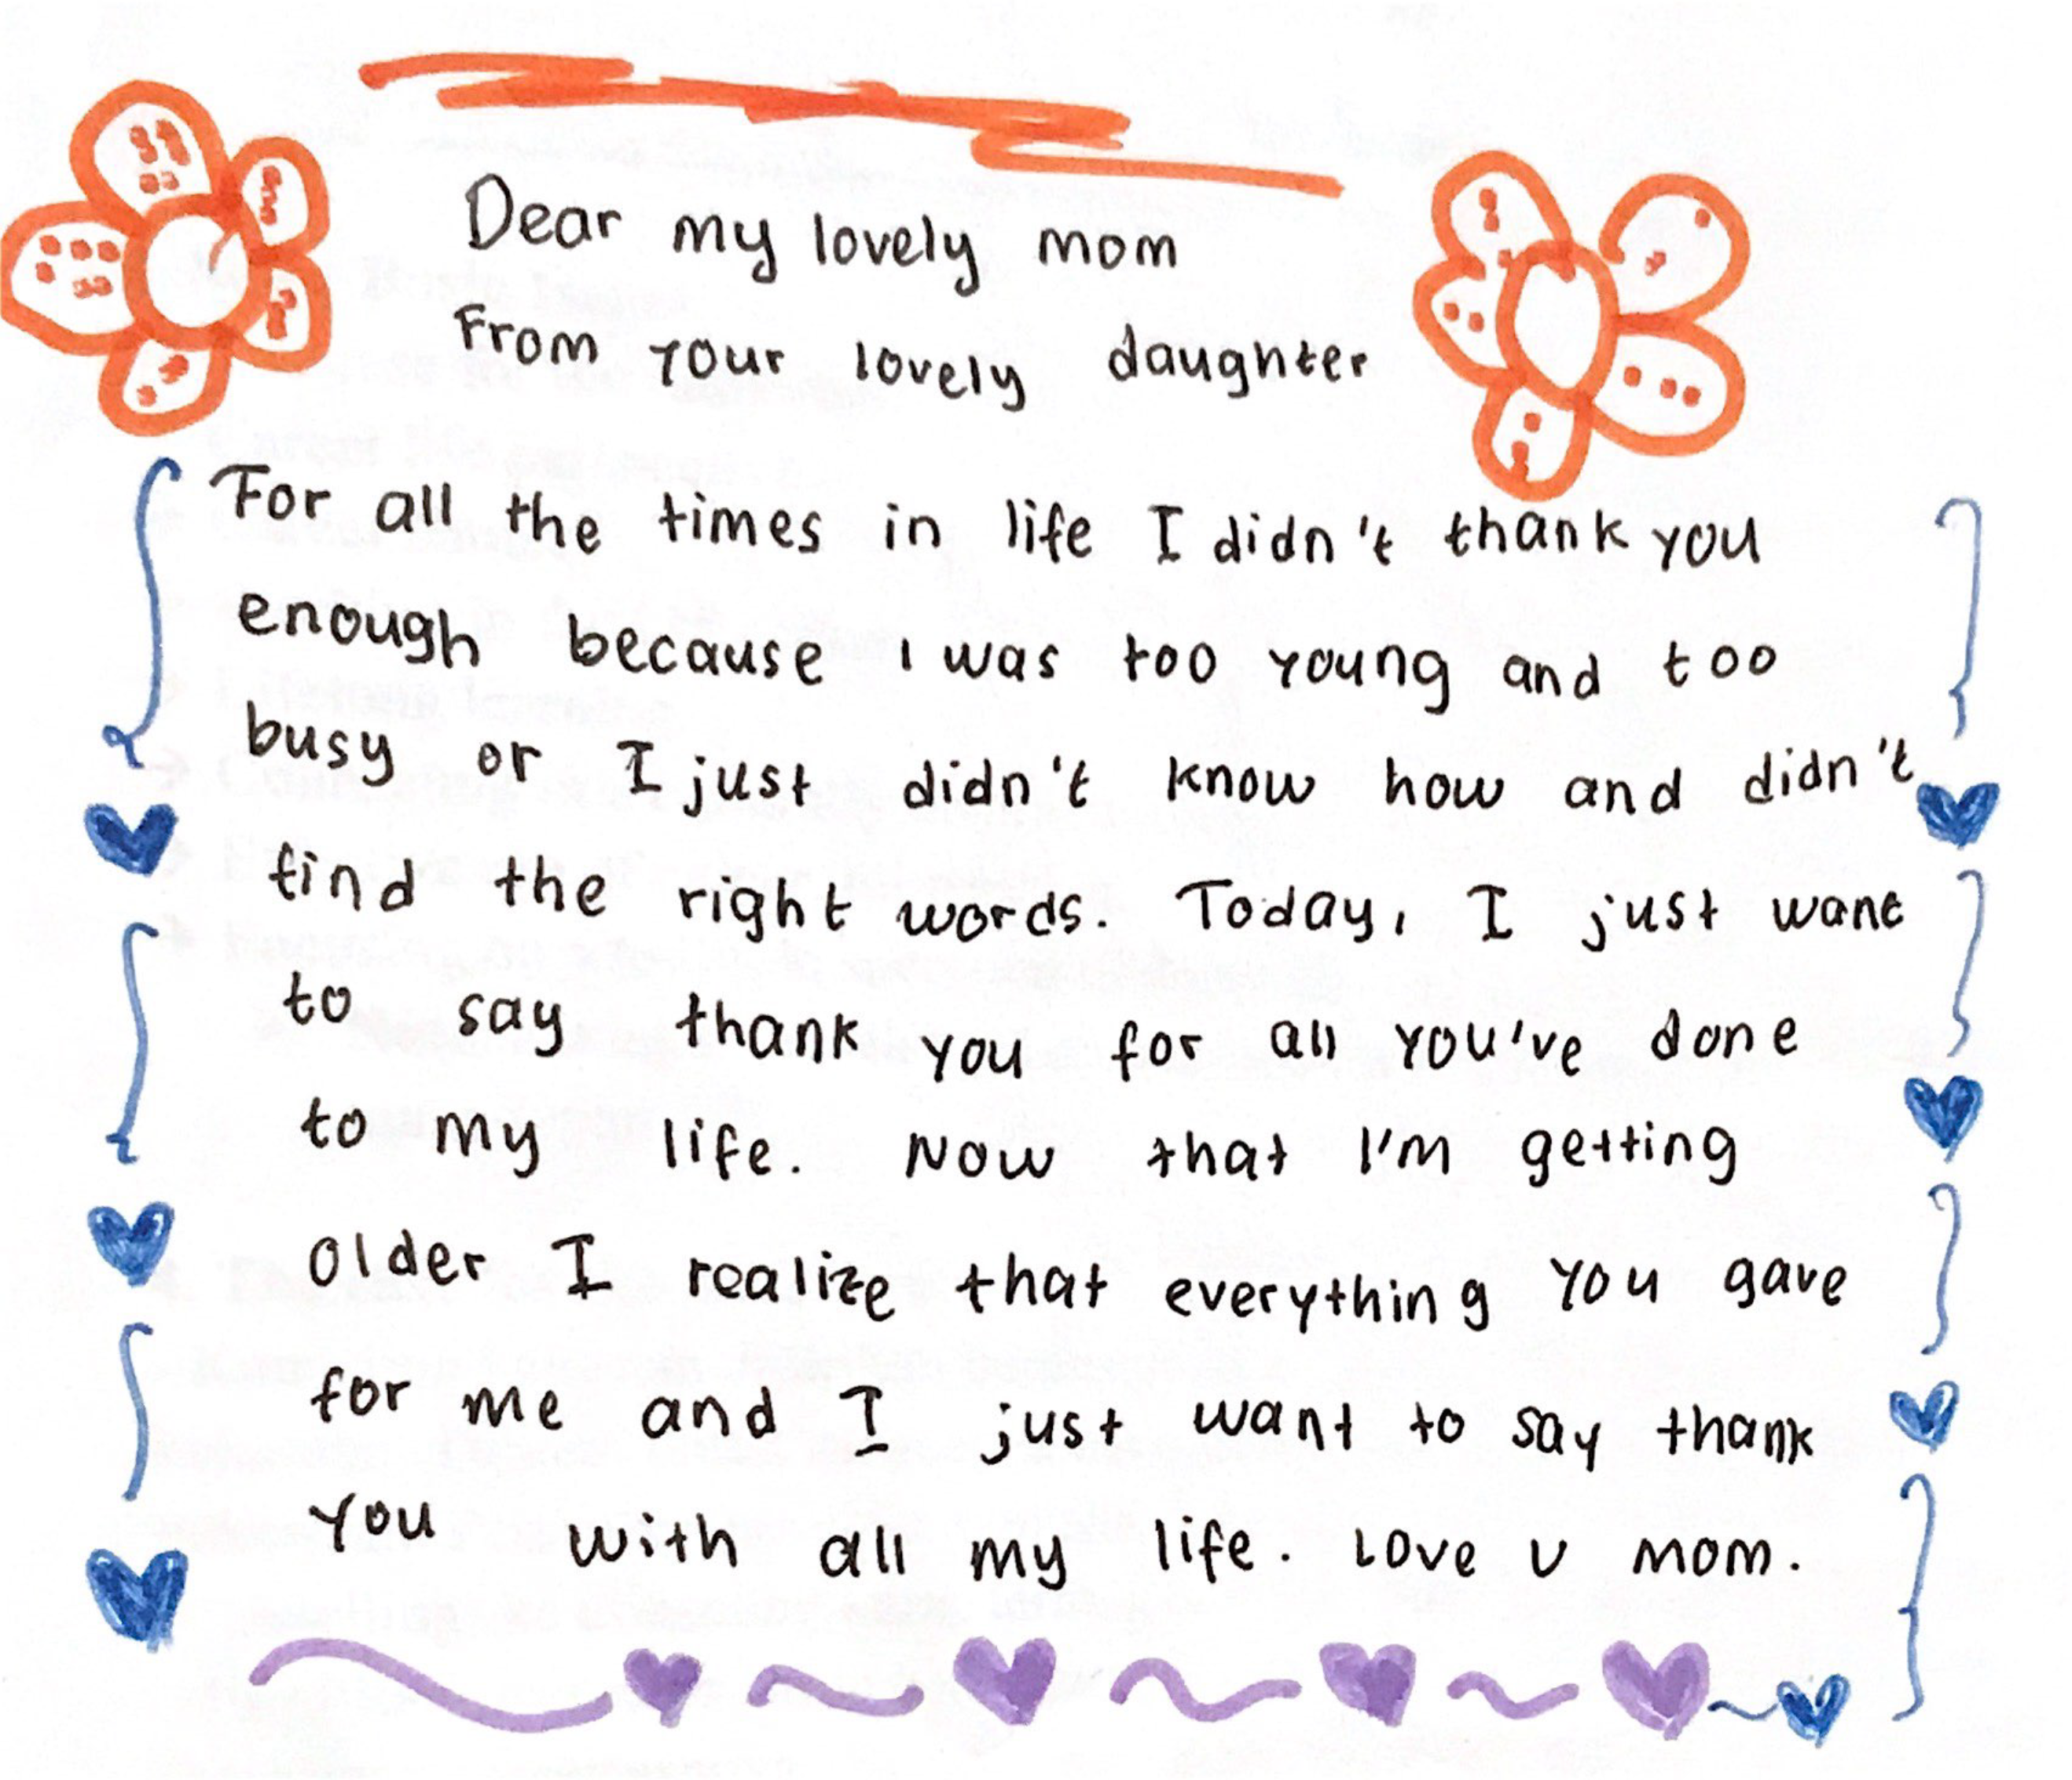 Dear my lovely mom
From your lovely daughter
For all the times in life I didn't thank you
enough because I was too young and too
busy or I just didn't know how and didn't
find the right words. Today, I just want
to say thank you for all you've done
to my life. Now that I'm getting
older I realize that everything you gave
for me and I just want to say thank
you with all my life. Love u mom.